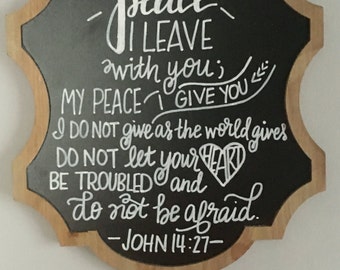 peace
I LEAVE
with you;
MY PEACE I GIVE YOU
I DO NOT give as the world gives
DO NOT let your HEART
BE TROUBLED and
do not be afraid.
-JOHN 14:27-